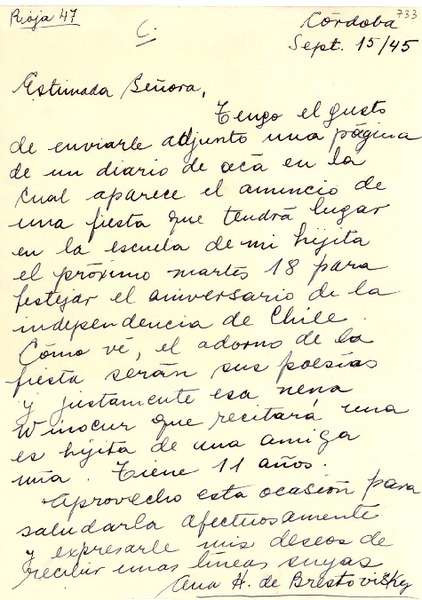 Rioja 47
733
C.
Córdoba
Sept. 15/45
Estimada Señora,
Tengo el gusto
de enviarle adjunto una página
de un diario de acá en la
cual aparece el anuncio de
una fiesta que tendrá lugar
en la escuela de mi hijita
el próximo martes 18 para
festejar el aniversario de la
independencia de Chile.
Cómo vé, el adorno de la
fiesta serán sus poesías
y justamente esa nena
Winocur que recitará una
es hijita de una amiga
mía. Tiene 11 años.
Aprovecho esta ocasión para
saludarla afectuosamente
y expresarle mis deseos de
recibir unas líneas suyas
Ana H. de Brestovisky